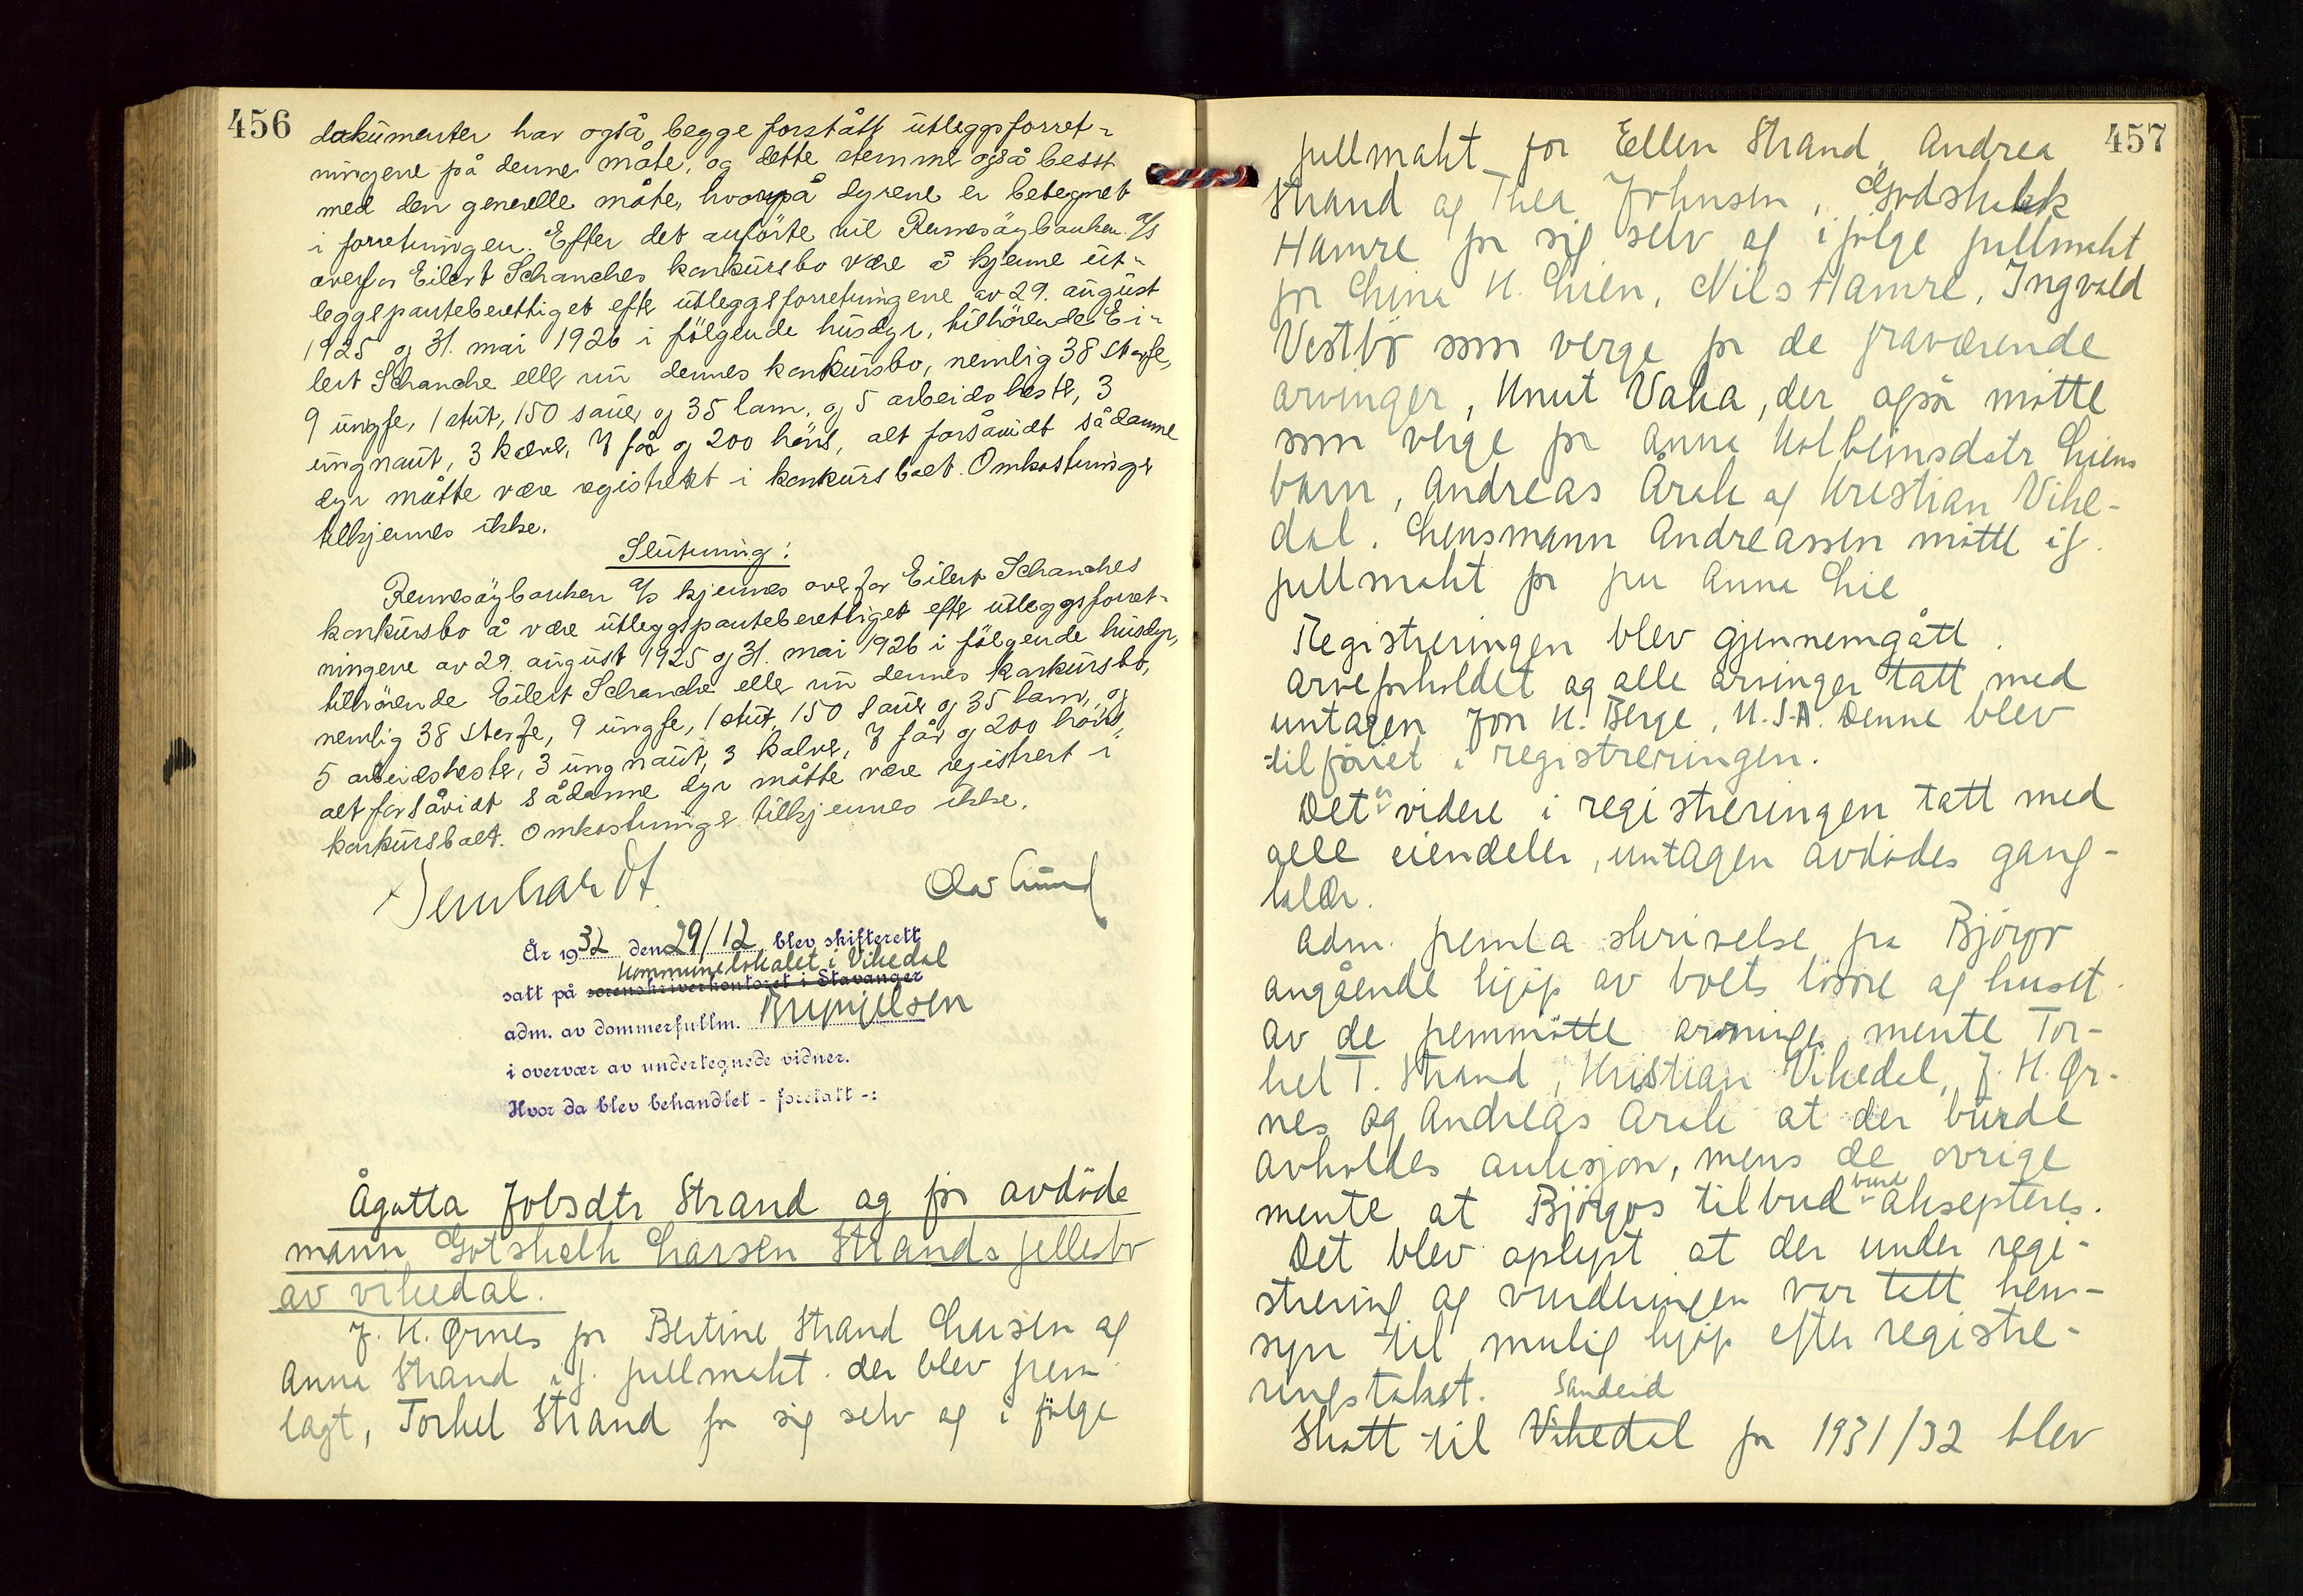 456
dokumenter har også begge forstått utleggsforret-
ningene på denne måte, og dette stemmer også besst
med den generelle måte, hvorpå dyrene er betegnet
i forretningen. Efter det anförte vil Rennesöybanken A/S
overfor Eilert Schanches konkursbo være å kjenne ut-
leggspanteberettiget efter utleggsforretningene av 29. august
1925 og 31. mai 1926 i fölgende husdyr, tilhörende Ei-
lert Schanche eller nu dennes konkursbo, nemlig 38 storfe,
9 ungfe, 1 stut, 150 sauer og 35 lam, og 5 arbeidsheste, 3
ungnaut, 3 kalve, 7 får og 200 höns, alt forsåvidt sådanne
dyr måtte være registrert i konkursboet. Omkostninger
tilkjennes ikke.
Slutning:
Rennesöybanken A/S kjennes overfor Eilert Schanches
konkursbo å være utleggspanteberettiget efter utleggsforret-
ningene av 29. august 1925 og 31. mai 1926 i fölgende husdyr,
tilhörende Eilert Schanche eller nu dennes konkursbo,
nemlig 38 storfe, 9 ungfe, 1 stut, 150 sauer og 35 lam, og
5 arbeidsheste, 3 ungnaut, 3 kalve, 7 får og 200 höns,
alt forsåvidt sådanne dyr måtte være registrert i
konkursboet. Omkostninger tilkjennes ikke.
Olav Lund
År 1932 den 29/12 blev skifterett
kommunelokalet i Vikedal
satt på sorenskriverkontoret i Stavanger
adm. av dommerfullm. Brynjelsen
i overvær av undertegnede vidner.
Hvor da blev behandlet - foretatt -:
Ågatta Jobsdtr Strand og for avdöde
mann Gotskalk Larsen Strands fellesbo
av Vikedal.
J. K. Ørnes for Bertine Strand Larsen og
Anna Strand if. fullmakt der blev frem
lagt, Torkel Strand for sig selv og i fölge
457
fullmakt for Ellen Strand, Andrea
Strand og Thea Johnsen, Godskalk
Hamre for sig selv og ifölge fullmakt
for Lina K. Lien, Nils Hamre, Ingvald
Vestbö som verge for de fraværende
arvinger, Knut Vaka, der også mötte
som verge for Anna Kolbeinsdatr Liens
barn, Andreas Årak og Kristian Vike-
dal. Lensmann Andreassen mötte if.
fullmakt for fru Anna Lie
Registreringen blev gjennemgått.
Arveforholdet og alle arvinger tatt med
untagen Jon K. Berge, U.S.A. Denne blev
tilföiet i registreringen.
Det er videre i registreringen tatt med
alle eiendeler, untagen avdödes gang-
klær.
Adm. fremla skrivelse fra Björgo
angående kjöp av boets lösöre og huset.
Av de fremmötte arvinger mente Tor-
kel T. Strand, Kristian Vikedal, J. K. Ør-
nes og Andreas Årak at der burde
avholdes auksjon, mens de övrige
mente at Björgos tilbud burde aksepteres.
Det blev oplyst at der under regi-
strering og vurderingen var tatt hen-
syn til mulig kjöp efter registre-
ringstakst.
Sandeid
Skatt til Vikedal for 1931/32 blev